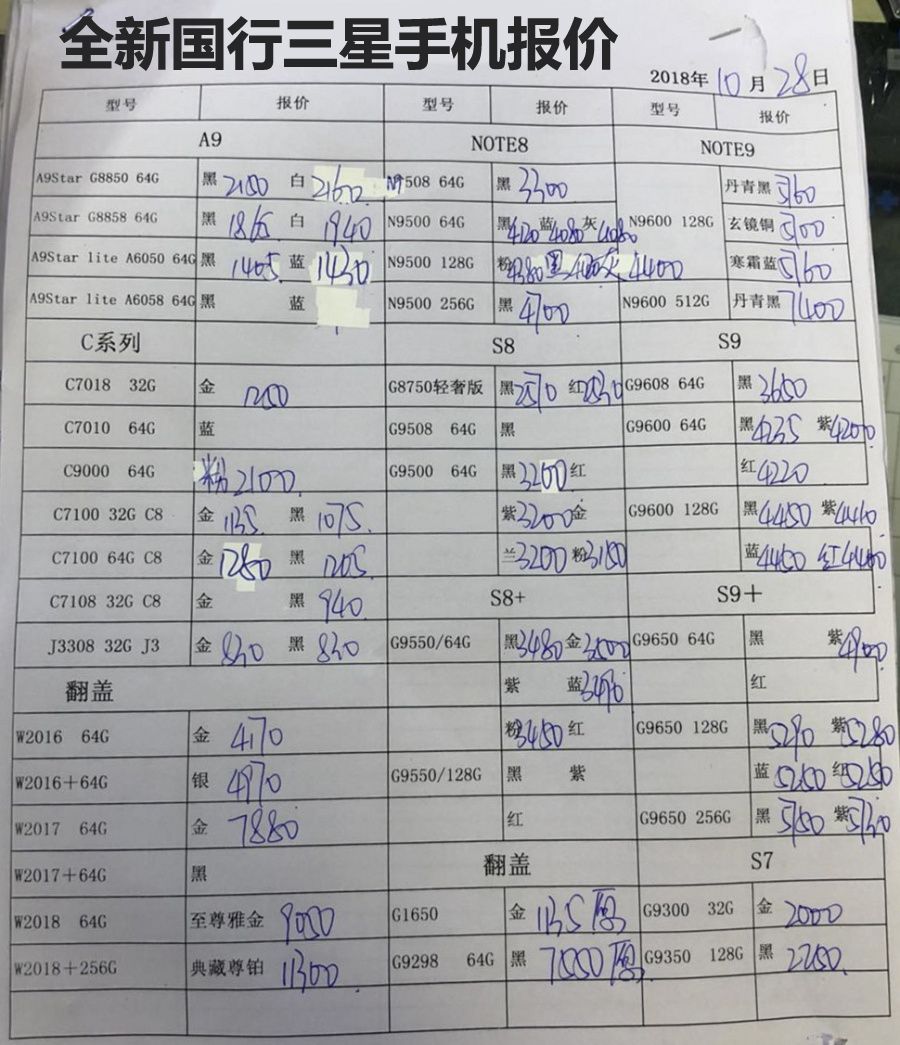 全新国行三星手机报价
2018年10月28日
型号 报价 型号 报价 型号 报价
A9 NOTE8 NOTE9
A9Star G8850 64G 黑 2150 白 2160 508 64G 黑 3300 丹青黑 5160
A9Star G8858 64G 黑 1865 白 1940 N9500 64G 黑4120 蓝4080 灰4080 N9600 128G 玄镜铜 5100
A9Star lite A6050 64G 黑 1405 蓝 1430 N9500 128G 粉4380 黑 灰4400 寒霜蓝 5160
A9Star lite A6058 64G 黑 蓝 N9500 256G 黑 4700 N9600 512G 丹青黑 7400
C系列 S8 S9
C7018 32G 金 1250 G8750轻奢版 黑2570 红2530 G9608 64G 黑 3650
C7010 64G 蓝 G9508 64G 黑 G9600 64G 黑4235 紫4200
C9000 64G 粉 2100 G9500 64G 黑3200 红 红4220
C7100 32G C8 金 1135 黑 1075 紫3200 金 G9600 128G 黑4450 紫4440
C7100 64G C8 金1280 黑 1205 兰3200 粉3150 蓝4450 红4440
C7108 32G C8 金 黑 940 S8+ S9+
J3308 32G J3 金 830 黑 830 G9550/64G 黑3480 金3500 G9650 64G 黑 紫4900
翻盖 紫 蓝3490 红
W2016 64G 金 4170 粉3450 红 G9650 128G 黑5290 紫5280
W2016+64G 银 4970 G9550/128G 黑 紫 蓝5250 红5250
W2017 64G 金 7880 红 G9650 256G 黑 5750 紫5730
W2017+64G 黑 翻盖 S7
W2018 64G 至尊雅金 9050 G1650 金 1135原 G9300 32G 金 2000
W2018+256G 典藏尊铂 11300 G9298 64G 黑 7550原 G9350 128G 黑 2250